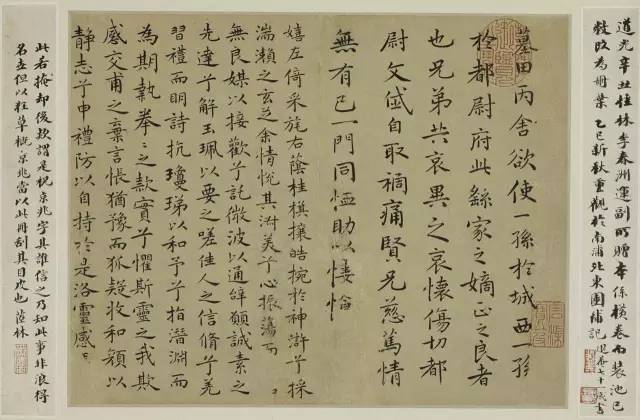 道光辛丑桂林李春洲運副所贈本係橫卷而裝池已
敝改為冊葉 乙巳新秋重觀於南浦北東園補記 退庵七十一歲書
墓田丙舍欲使一孫於城西一孫
於都尉府此繇家之嫡正之良者
也兄弟共哀異之哀懷傷切都
尉文岱自取禍痛賢兄慈篤情
無有已一門同恤助以悽愴
嬉左倚采旄右蔭桂旗攘皓腕於神滸兮採
湍瀨之玄芝余情悅其淑美兮心振蕩而
無良媒以接歡兮託微波以通辭願誠素之
先達兮解玉珮以要之嗟佳人之信脩兮羌
習禮而明詩抗瓊珶以和予兮指潛淵而
為期執拳〻之款實兮懼斯靈之我欺
感交甫之棄言悵猶豫而狐疑收和顏以
靜志兮申禮防以自持於是洛靈感
此若掩却後款謂是祝京兆字其誰信之乃知此事非浪得
名者但以狂草概京兆當以此冊刮其目也 茝林